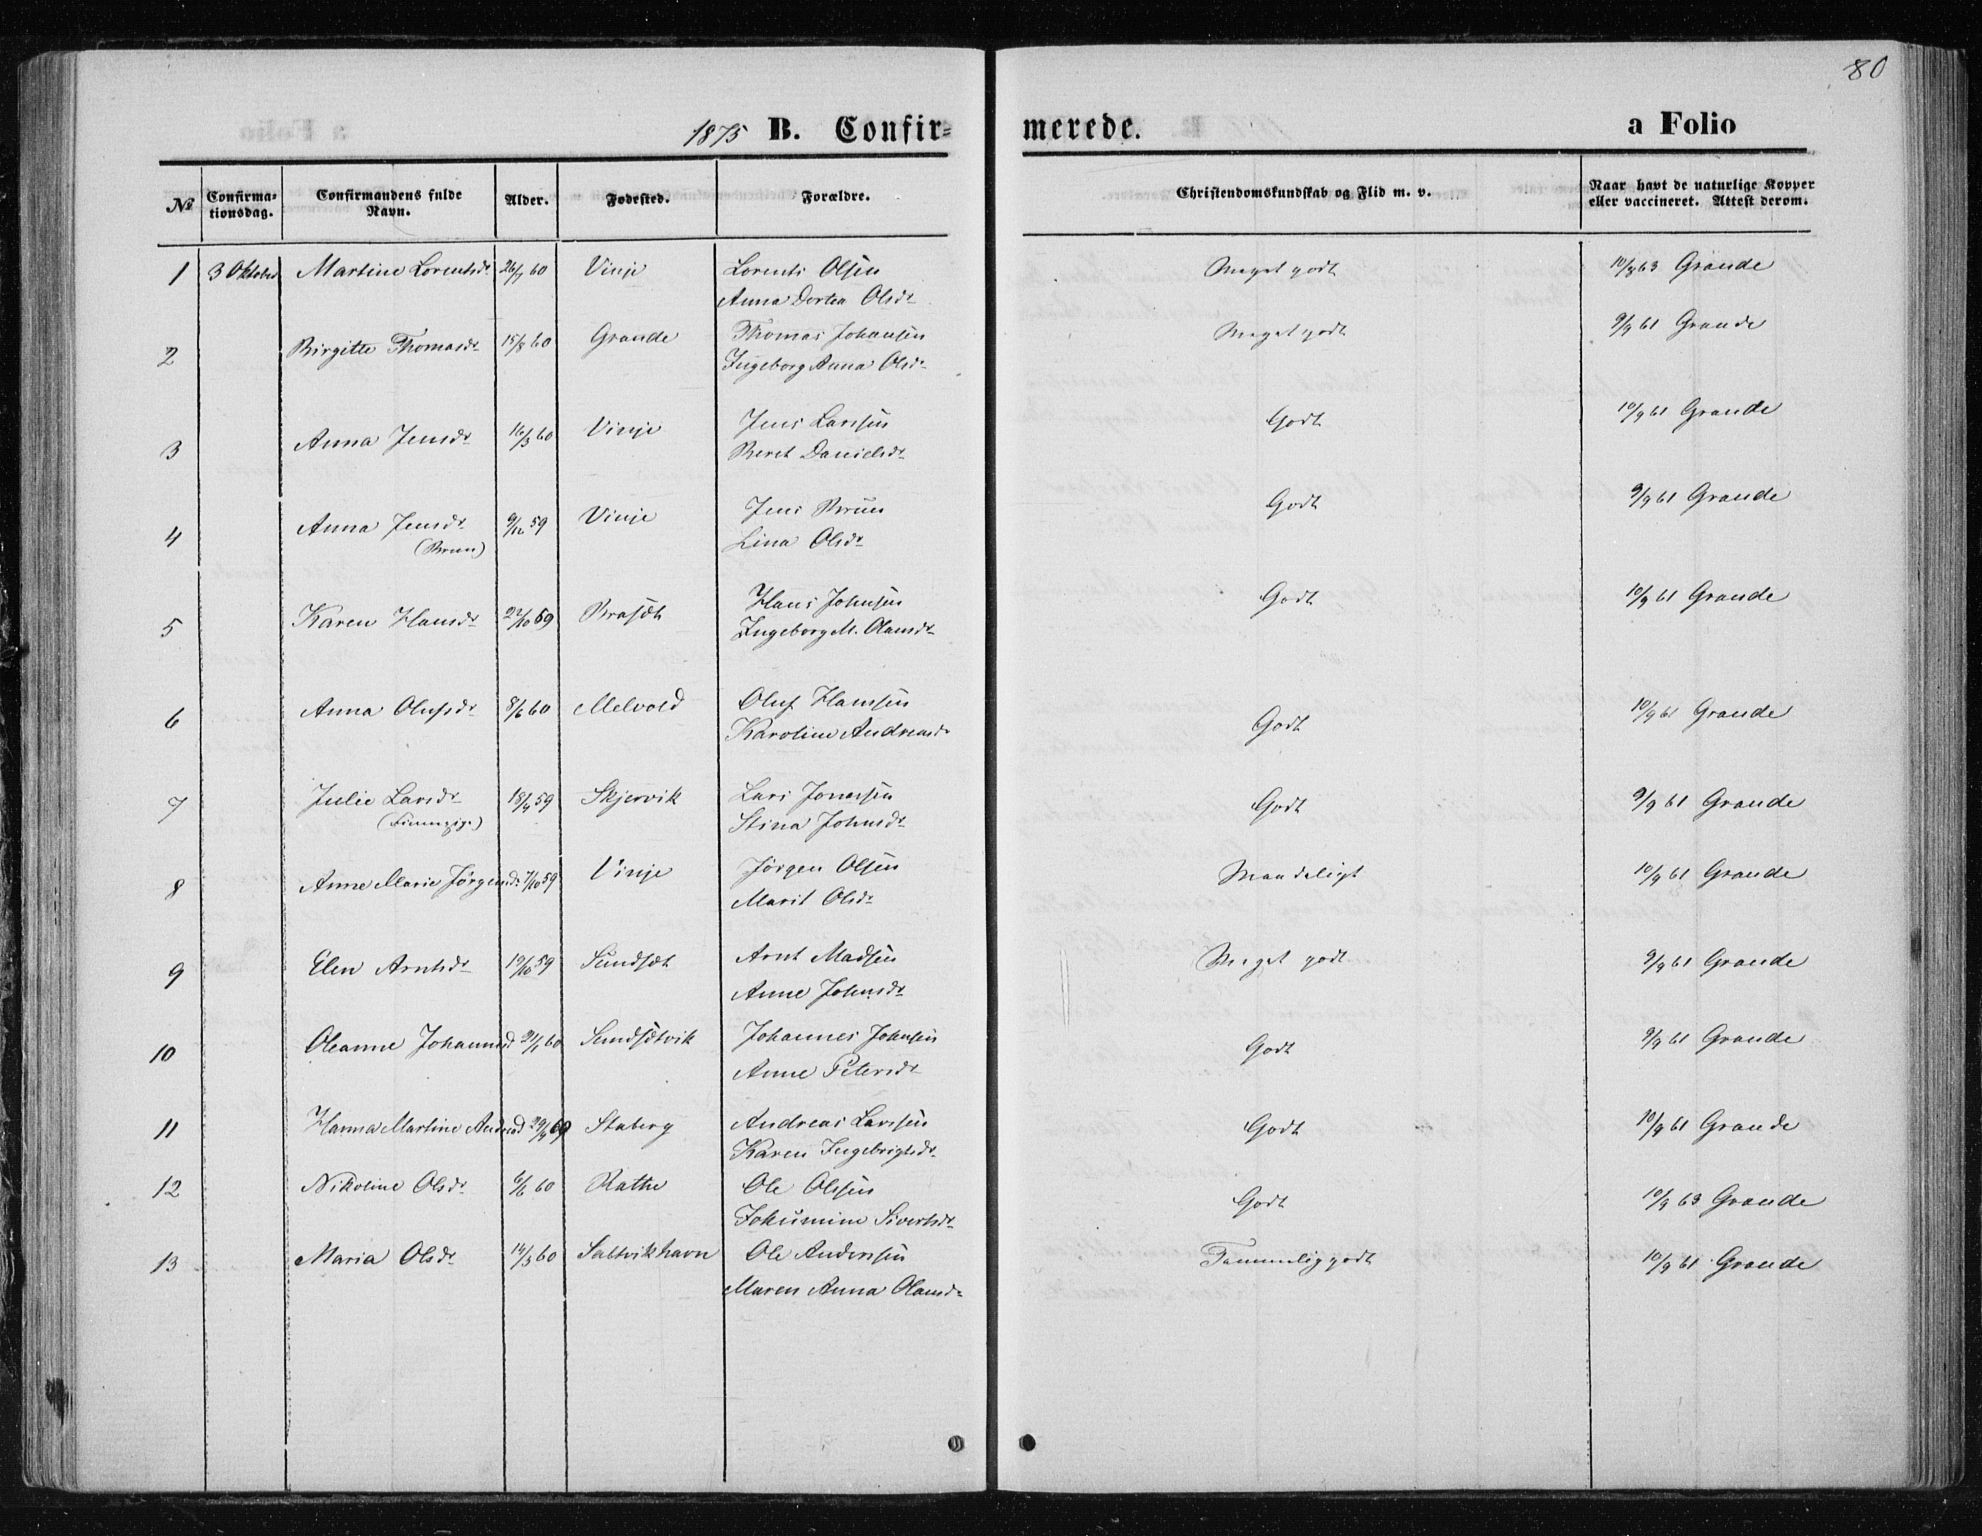 80
1875 B. Confir= merede. a Folio
No Confirma-tionsdag. Confirmandens fulde Navn. Alder. Fødested. Forældre. Christendomskundskab og Flid m. v. Naar havt de naturlige Kopper eller vaccineret. Attest derom.
1 3 Oktober Martine Lorentsdr 26/7 60 Vinje Lorents Olsen Meget godt 10/8 63 Grande
Anna Dortea Olsdr
2 Birgitte Thomasdr 15/8 60 Grande Thomas Johansen Meget godt 9/9 61 Grande
Ingeborg Anna Olsdr
3 Anna Jensdr 16/3 60 Vinje Jens Larsen Godt 10/9 61 Grande
Beret Danielsdr
4 Anna Jensdr 9/12 59 Vinje Jens Brun Godt 9/9 61 Grande
(Brun) Lina Olsdr
5 Karen Hansdr 22/10 59 Brasæt Hans Johnsen Godt 10/9 61 Grande
Ingeborg M. Olausdr
6 Anna Olufsdr 8/6 60 Melvold Oluf Hansen Godt 10/9 61 Grande
Karoline Andreasdr
7 Julie Larsdr 18/4 59 Skjervik Lars Jonassen Godt 9/9 61 Grande
Stina Johnsdr
8 Anne Marie Jørgensd. 7/10 59 Vinje Jørgen Olsen Maadeligt 10/9 61 Grande
Marit Olsdr
9 Elen Arntsdr 19/10 59 Sundsæt Arnt Madsen Meget godt 9/9 61 Grande
Anne Johnsdr
10 Oleanne Johannesd 60 Sundsætvik Johannes Johnsen Godt 9/9 61 Grande
Anne Petersdr
11 Hanna Martine Andread 29/9 59 Staberg Andreas Larsen Godt 10/9 61 Grande
Karen Ingebrigtsdr
12 Nikoline Olsdr 6/6 60 Rathe Ole Olsen Godt 10/9 63 Grande
Jokumine Sivertsdr
13 Maria Olsdr 14/3 60 Saltvikhavn Ole Andersen Temmelig godt 10/9 61 Grande
Maren Anna Olausdr